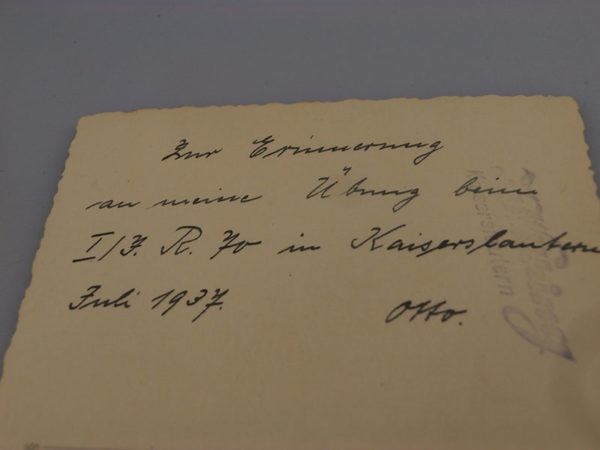 Zur Erinnerung
an meine Übung beim
I/J. R. 70 in Kaiserslautern
Juli 1937. Otto.
Kaiserslautern